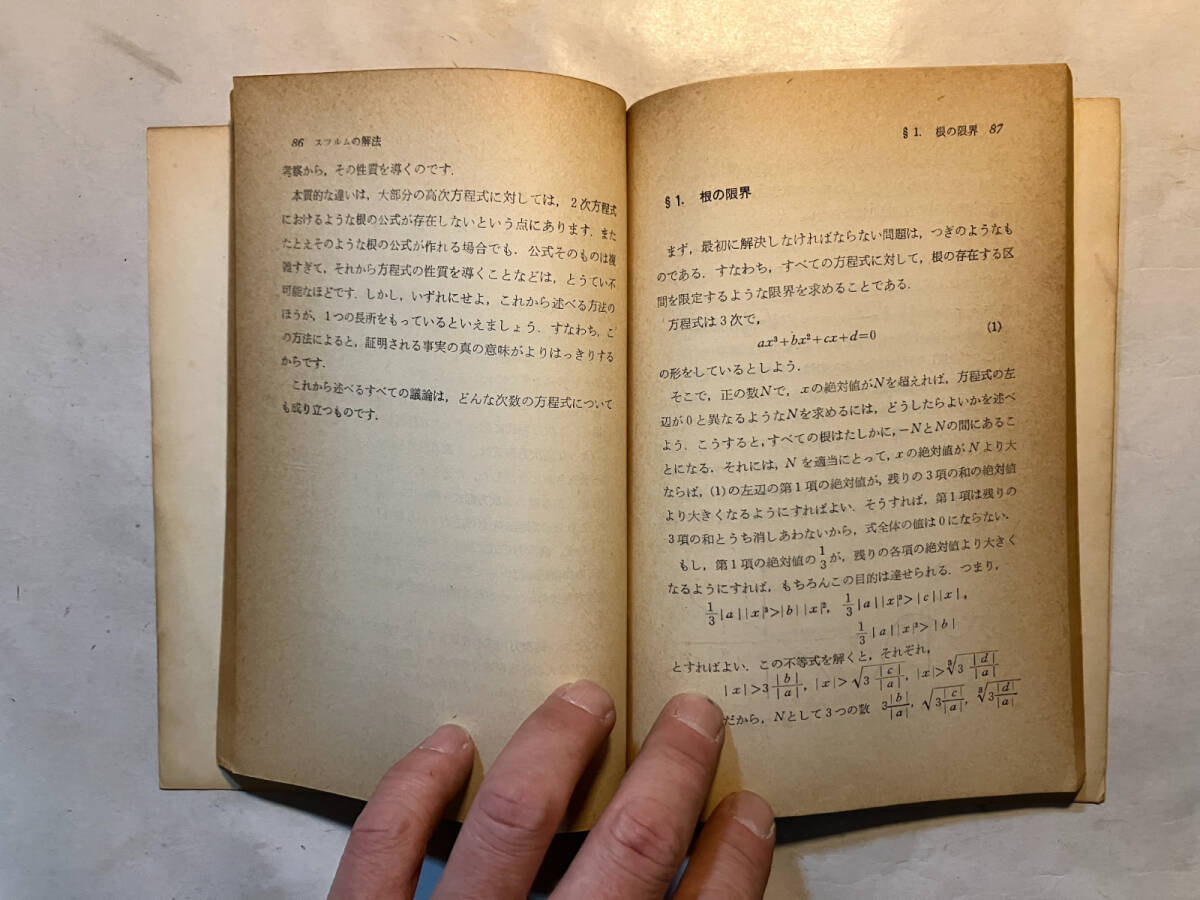 86 スツルムの解法
考察から,その性質を導くのです.
本質的な違いは,大部分の高次方程式に対しては,2次方程式
におけるような根の公式が存在しないという点にあります.また
たとえそのような根の公式が作れる場合でも.公式そのものは複
雑すぎて,それから方程式の性質を導くことなどは,とうてい不
可能なほどです.しかし,いずれにせよ,これから述べる方法の
ほうが,1つの長所をもっているといえましょう.すなわち,こ
の方法によると,証明される事実の真の意味がよりはっきりする
からです.
これから述べるすべての議論は,どんな次数の方程式について
も成り立つものです.
§1. 根の限界 87
§1. 根の限界
まず,最初に解決しなければならない問題は,つぎのようなも
のである.すなわち,すべての方程式に対して,根の存在する区
間を限定するような限界を求めることである.
方程式は3次で,
ax³+bx²+cx+d=0 (1)
の形をしているとしよう.
そこで,正の数Nで,xの絶対値がNを超えれば,方程式の左
辺が0と異なるようなNを求めるには,どうしたらよいかを述べ
よう.こうすると,すべての根はたしかに,−NとNの間にあるこ
とになる.それには,Nを適当にとって,xの絶対値がNより大
ならば,(1)の左辺の第1項の絶対値が,残りの3項の和の絶対値
より大きくなるようにすればよい.そうすれば,第1項は残りの
3項の和とうち消しあわないから,式全体の値は0にならない.
もし,第1項の絶対値の1/3が,残りの各項の絶対値より大きく
なるようにすれば,もちろんこの目的は達せられる.つまり,
1/3|a||x|³>|b||x|², 1/3|a||x|³>|c||x|,
1/3|a||x|³>|b|
とすればよい.この不等式を解くと,それぞれ,
|x|>3|b|/|a|, |x|>√3|c|/|a|, |x|>³√3|d|/|a|
だから,Nとして3つの数 3|b|/|a|, √3|c|/|a|, ³√3|d|/|a|